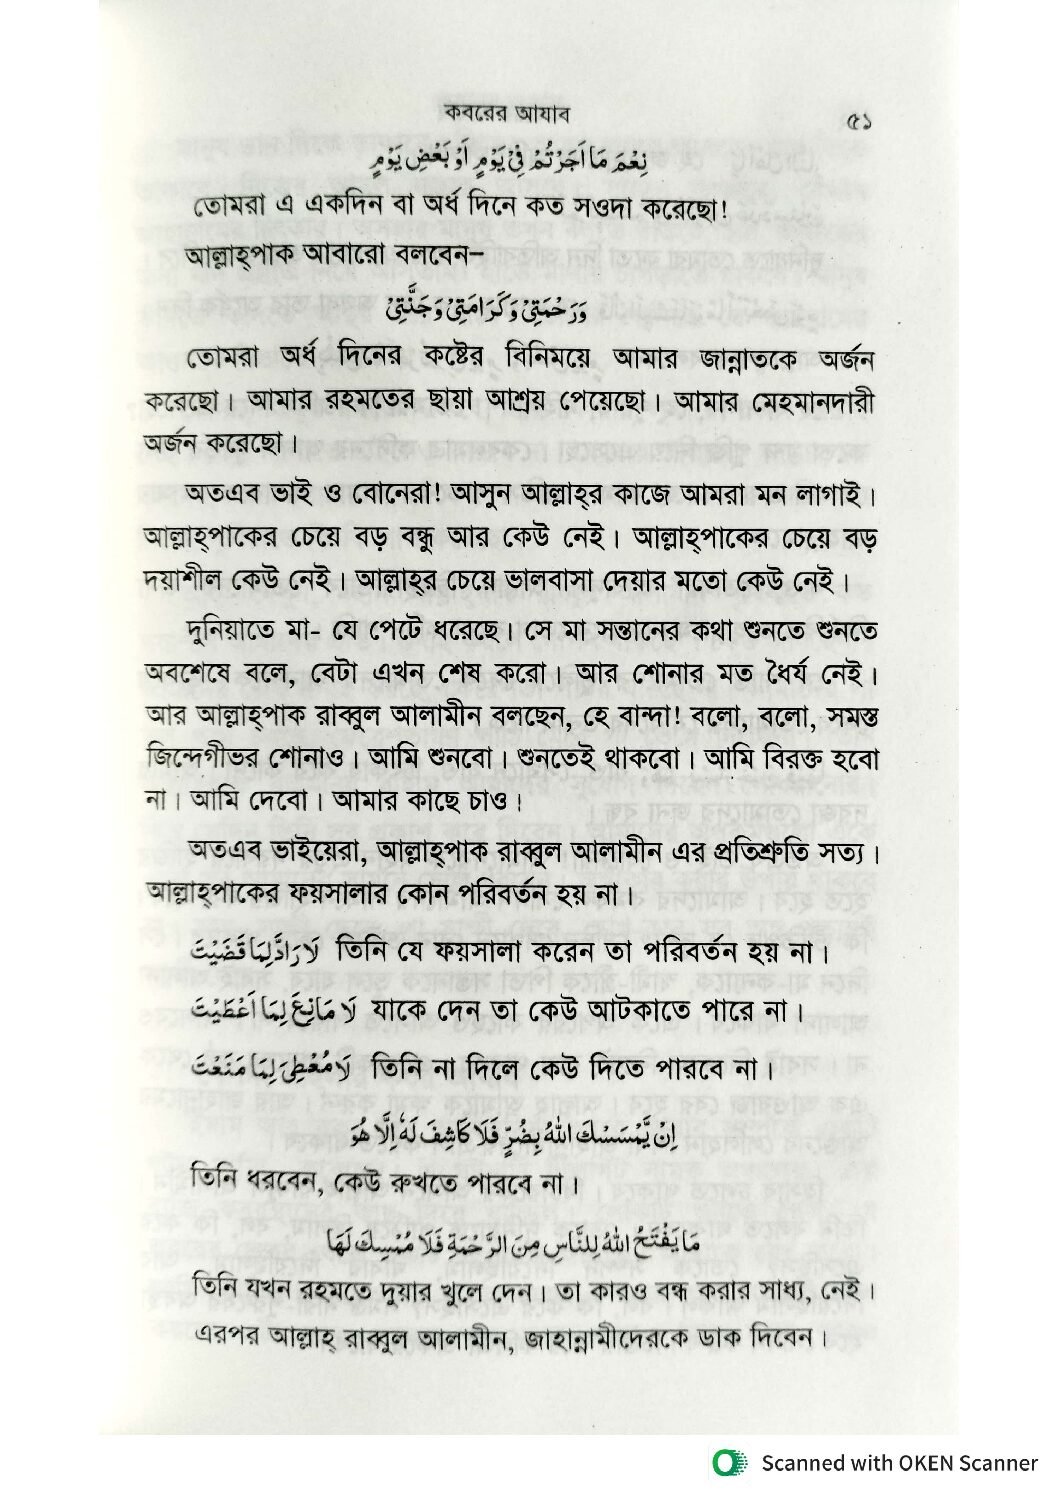 কবরের আযাব ৫১
نِعْمَ مَا اَجَرْتُمْ فِيْ يَوْمٍ اَوْ بَعْضِ يَوْمٍ
তোমরা এ একদিন বা অর্ধ দিনে কত সওদা করেছো!
আল্লাহ্‌পাক আবারো বলবেন–
وَرَحْمَتِيْ وَكَرَامَتِيْ وَجَنَّتِيْ
তোমরা অর্ধ দিনের কষ্টের বিনিময়ে আমার জান্নাতকে অর্জন
করেছো। আমার রহমতের ছায়া আশ্রয় পেয়েছো। আমার মেহমানদারী
অর্জন করেছো।
অতএব ভাই ও বোনেরা! আসুন আল্লাহ্‌র কাজে আমরা মন লাগাই।
আল্লাহ্‌পাকের চেয়ে বড় বন্ধু আর কেউ নেই। আল্লাহ্‌পাকের চেয়ে বড়
দয়াশীল কেউ নেই। আল্লাহ্‌র চেয়ে ভালবাসা দেয়ার মতো কেউ নেই।
দুনিয়াতে মা- যে পেটে ধরেছে। সে মা সন্তানের কথা শুনতে শুনতে
অবশেষে বলে, বেটা এখন শেষ করো। আর শোনার মত ধৈর্য নেই।
আর আল্লাহ্‌পাক রাব্বুল আলামীন বলছেন, হে বান্দা! বলো, বলো, সমস্ত
জিন্দেগীভর শোনাও। আমি শুনবো। শুনতেই থাকবো। আমি বিরক্ত হবো
না। আমি দেবো। আমার কাছে চাও।
অতএব ভাইয়েরা, আল্লাহ্‌পাক রাব্বুল আলামীন এর প্রতিশ্রুতি সত্য।
আল্লাহ্‌পাকের ফয়সালার কোন পরিবর্তন হয় না।
لَا رَادَّ لِمَا قَضَيْتَ তিনি যে ফয়সালা করেন তা পরিবর্তন হয় না।
لَا مَانِعَ لِمَا اَعْطَيْتَ যাকে দেন তা কেউ আটকাতে পারে না।
لَا مُعْطِيَ لِمَا مَنَعْتَ তিনি না দিলে কেউ দিতে পারবে না।
اِنْ يَّمْسَسْكَ اللهُ بِضُرٍّ فَلَا كَاشِفَ لَهٗ اِلَّا هُوَ
তিনি ধরবেন, কেউ রুখতে পারবে না।
مَا يَفْتَحُ اللهُ لِلنَّاسِ مِنَ الرَّحْمَةِ فَلَا مُمْسِكَ لَهَا
তিনি যখন রহমতে দুয়ার খুলে দেন। তা কারও বন্ধ করার সাধ্য, নেই।
এরপর আল্লাহ্ রাব্বুল আলামীন, জাহান্নামীদেরকে ডাক দিবেন।
Scanned with OKEN Scanner